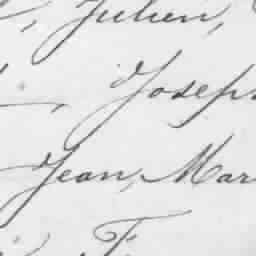 , Julien,
, Joseph
Jean, Mar